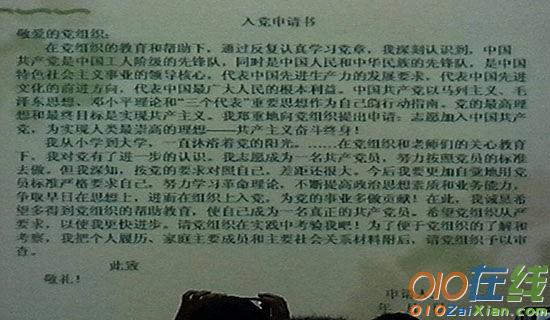 入党申请书
敬爱的党组织：
在党组织的教育和帮助下，通过反复认真学习党章，我深刻认识到，中国
共产党是中国工人阶级的先锋队，同时是中国人民和中华民族的先锋队，是中国
特色社会主义事业的领导核心，代表中国先进生产力的发展要求，代表中国先进
文化的前进方向，代表中国最广大人民的根本利益。中国共产党以马列主义、毛
泽东思想、邓小平理论和“三个代表”重要思想作为自己的行动指南。党的最高理
想和最终目标是实现共产主义。我郑重地向党组织提出申请：志愿加入中国共产
党，为实现人类最崇高的理想——共产主义奋斗终身！
我从小学到大学，一直沐浴着党的阳光。……在党组织和老师们的关心教育
下，我对党有了进一步的认识。我志愿成为一名共产党员，努力按照党员的标准
去做。但我深知，按党的要求对照自己，差距还很大。今后我要更加自觉地用党
员标准严格要求自己，努力学习革命理论，不断提高政治思想素质和业务能力，
争取早日在思想上，进而在组织上入党，为党的事业多做贡献！在此，我诚恳希
望多得到党组织的帮助教育，使自己成为一名真正的共产党员。希望党组织从严
要求，以使我更快进步。请党组织在实践中考验我吧！为了便于党组织的了解和
考察，我把个人履历、家庭主要成员和主要社会关系材料附后，请党组织予以审
查。
此致
敬礼！
申请人
年 月
010在线
010ZaiXian.com